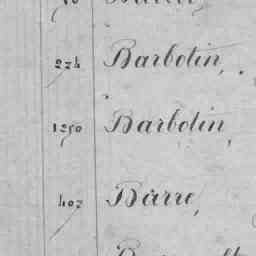 224 Barbotin,
1250 Barbotin,
402 Barre,